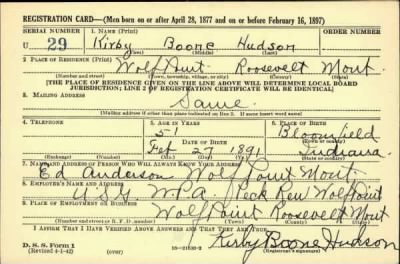 REGISTRATION CARD—(Men born on or after April 28, 1877 and on or before February 16, 1897)
SERIAL NUMBER 1. NAME (Print) ORDER NUMBER
U 29 Kirby Boone Hudson
(First) (Middle) (Last)
2. PLACE OF RESIDENCE (Print)
Wolf Point Roosevelt Mont.
(Number and street) (Town, township, village, or city) (County) (State)
[THE PLACE OF RESIDENCE GIVEN ON THE LINE ABOVE WILL DETERMINE LOCAL BOARD
JURISDICTION; LINE 2 OF REGISTRATION CERTIFICATE WILL BE IDENTICAL]
3. MAILING ADDRESS
Same.
[Mailing address if other than place indicated on line 2. If same insert word same]
4. TELEPHONE 5. AGE IN YEARS 6. PLACE OF BIRTH
51 Bloomfield
DATE OF BIRTH (Town or county)
Feb 27 1891 Indiana
(Exchange) (Number) (Mo.) (Day) (Yr.) (State or country)
7. NAME AND ADDRESS OF PERSON WHO WILL ALWAYS KNOW YOUR ADDRESS
Ed Anderson Wolf Point Mont.
8. EMPLOYER'S NAME AND ADDRESS
U.S.G. W.P.A. Wolf Point
9. PLACE OF EMPLOYMENT OR BUSINESS
Wolf Point Roosevelt Mont
(Number and street or R. F. D. number) (Town) (County) (State)
I AFFIRM THAT I HAVE VERIFIED ABOVE ANSWERS AND THAT THEY ARE TRUE.
D. S. S. Form 1
(Revised 4-1-42) (over) Kirby Boone Hudson
(Registrant's signature)